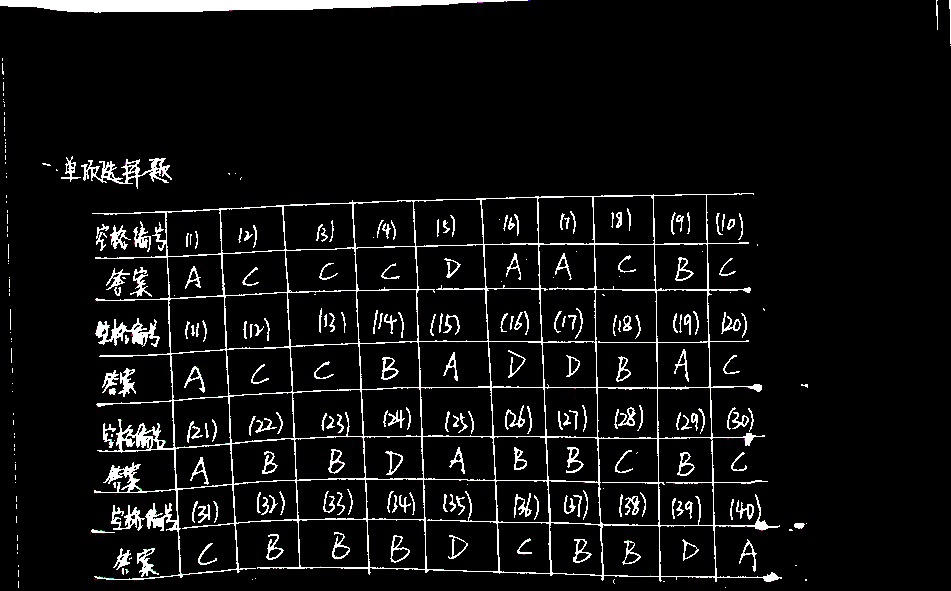 一单项选择题
空格编号 (1) (2) (3) (4) (5) (6) (7) (8) (9) (10)
答案 A C C C D A A C B C
空格编号 (11) (12) (13) (14) (15) (16) (17) (18) (19) (20)
答案 A C C B A D D B A C
空格编号 (21) (22) (23) (24) (25) (26) (27) (28) (29) (30)
答案 A B B D A B B C B C
空格编号 (31) (32) (33) (34) (35) (36) (37) (38) (39) (40)
答案 C B B B D C B B D A